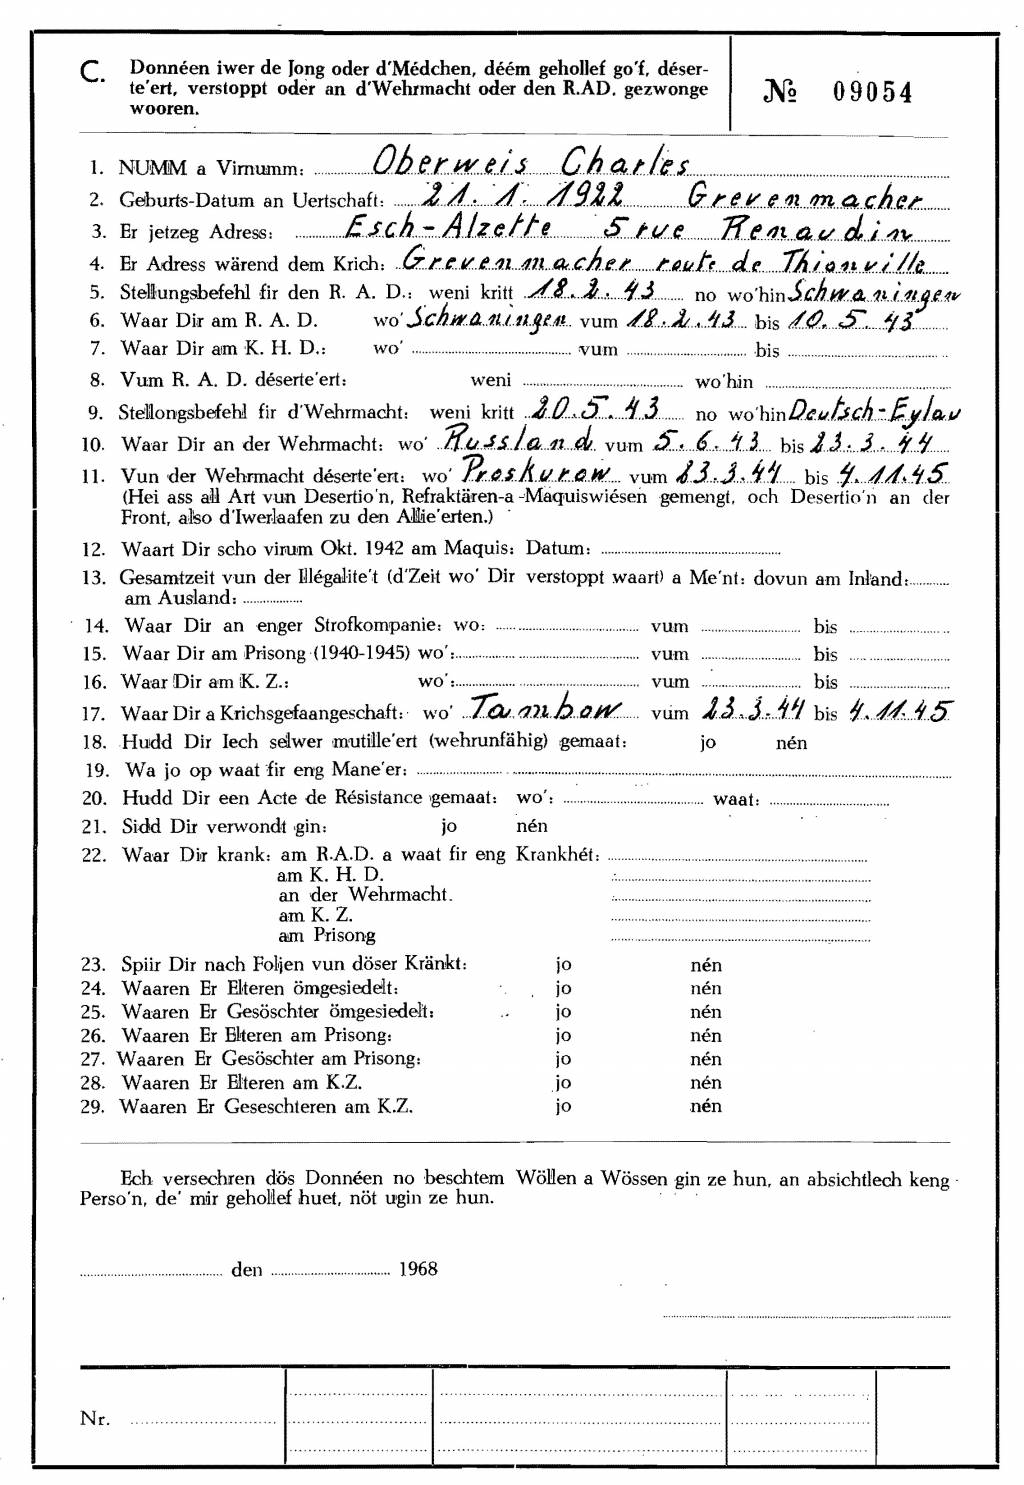 C. Donnéen iwer de Jong oder d'Médchen, déém gehollef go'f, déser-
te'ert, verstoppt oder an d'Wehrmacht oder den R.AD. gezwonge
wooren.
№ 09054
1. NUMM a Virnumm: Oberweis Charles
2. Geburts-Datum an Uertschaft: 21. 1. 1922 Grevenmacher
3. Er jetzeg Adress: Esch-Alzette 5 rue Renaudin
4. Er Adress wärend dem Krich: Grevenmacher route de Thionville
5. Stellungsbefehl fir den R. A. D.: weni kritt 18.2.43 no wo'hin Schwaningen
6. Waar Dir am R. A. D. wo' Schwaningen vum 18.2.43 bis 10.5.43
7. Waar Dir am K. H. D.: wo' vum bis
8. Vum R. A. D. déserte'ert: weni wo'hin
9. Stellongsbefehl fir d'Wehrmacht: weni kritt 20.5.43 no wo'hin Deutsch-Eylau
10. Waar Dir an der Wehrmacht: wo' Russland vum 5.6.43 bis 23.3.44
11. Vun der Wehrmacht déserte'ert: wo' Proskurow vum 23.3.44 bis 4.11.45
(Hei ass all Art vun Desertio'n, Refraktären-a -Maquiswiésen gemengt, och Desertio'n an der
Front, also d'Iwerlaafen zu den Allie'erten.)
12. Waart Dir scho virum Okt. 1942 am Maquis: Datum:
13. Gesamtzeit vun der Illégalite't (d'Zeit wo' Dir verstoppt waart) a Me'nt: dovun am Inland:
am Ausland:
14. Waar Dir an enger Strofkompanie: wo: vum bis
15. Waar Dir am Prisong (1940-1945) wo': vum bis
16. Waar Dir am K. Z.: wo': vum bis
17. Waar Dir a Krichsgefaangeschaft: wo' Tambow vum 23.3.44 bis 4.11.45
18. Hudd Dir Iech selwer mutille'ert (wehrunfähig) gemaat: jo nén
19. Wa jo op waat fir eng Mane'er:
20. Hudd Dir een Acte de Résistance gemaat: wo': waat:
21. Sidd Dir verwondt gin: jo nén
22. Waar Dir krank: am R.A.D. a waat fir eng Krankhét:
am K. H. D.
an der Wehrmacht.
am K. Z.
am Prisong
23. Spiir Dir nach Foljen vun döser Kränkt: jo nén
24. Waaren Er Elteren ömgesiedelt: jo nén
25. Waaren Er Gesöschter ömgesiedelt: jo nén
26. Waaren Er Elteren am Prisong: jo nén
27. Waaren Er Gesöschter am Prisong: jo nén
28. Waaren Er Elteren am K.Z. jo nén
29. Waaren Er Geseschteren am K.Z. jo nén
Ech versechren dös Donnéen no beschtem Wöllen a Wössen gin ze hun, an absichtlech keng
Perso'n, de' mir gehollef huet, nöt ugin ze hun.
den 1968
Nr.